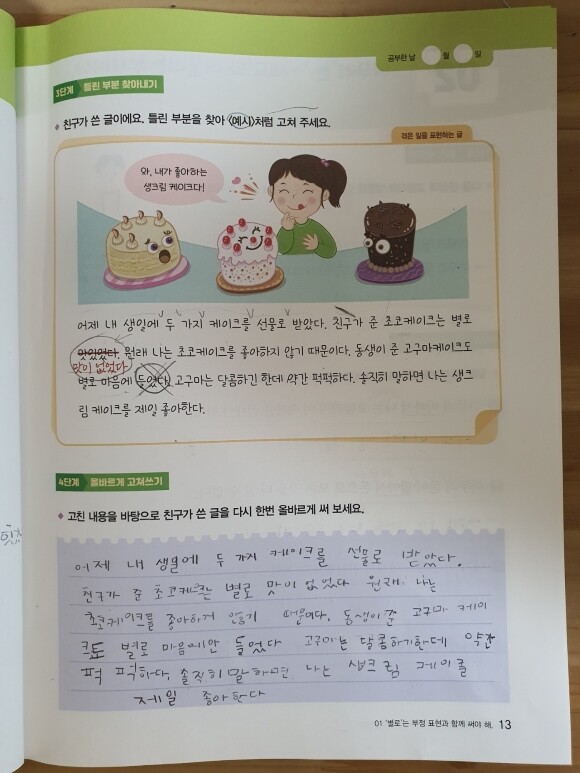 공부한 날 월 일
3단계 틀린 부분 찾아내기
친구가 쓴 글이에요. 틀린 부분을 찾아 <예시>처럼 고쳐 주세요.
겪은 일을 표현하는 글
와, 내가 좋아하는
생크림 케이크다!
어제 내 생일에 두 가지 케이크를 선물로 받았다. 친구가 준 초코케이크는 별로
맛있었다. 원래 나는 초코케이크를 좋아하지 않기 때문이다. 동생이 준 고구마케이크도
맛이 없었다
별로 마음에 들었다. 고구마는 달콤하긴 한데 약간 퍽퍽하다. 솔직히 말하면 나는 생크
림 케이크를 제일 좋아한다.
4단계 올바르게 고쳐쓰기
고친 내용을 바탕으로 친구가 쓴 글을 다시 한번 올바르게 써 보세요.
어제 내 생일에 두 가지 케이크를 선물로 받았다.
친구가 준 초코케이크는 별로 맛이 없었다 원래 나는
초코케이크를 좋아하지 않기 때문이다. 동생이 준 고구마 케이
크도 별로 마음에안 들었다 고구마는 달콤하기한데 약간
퍽 퍽하다. 솔직히 말하면 나는 생크림 케이크를
제일 좋아한다
01 '별로'는 부정 표현과 함께 써야 해. 13